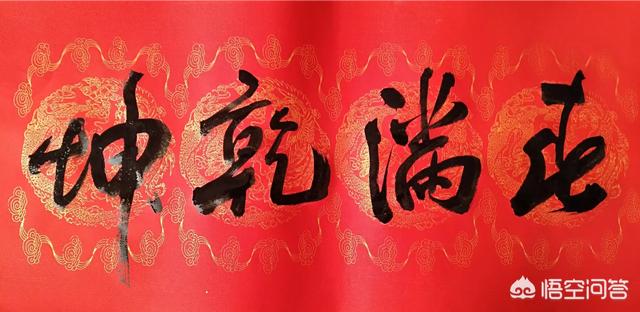 春满乾坤
悟空问答